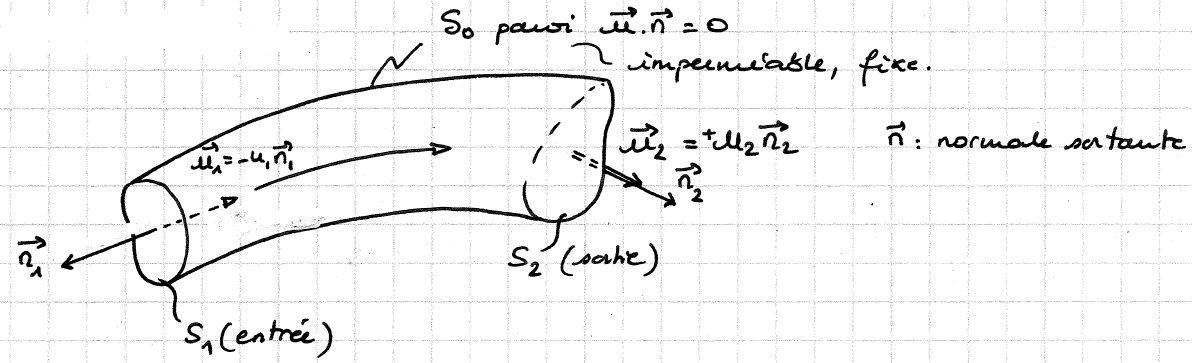 S₀ paroi u⃗.n⃗ = 0
imperméable, fixe.
u⃗₁=-u₁n⃗₁
u⃗₂ = +u₂n⃗₂
n⃗ : normale sortante
n⃗₂
n⃗₁
S₂ (sortie)
S₁ (entrée)